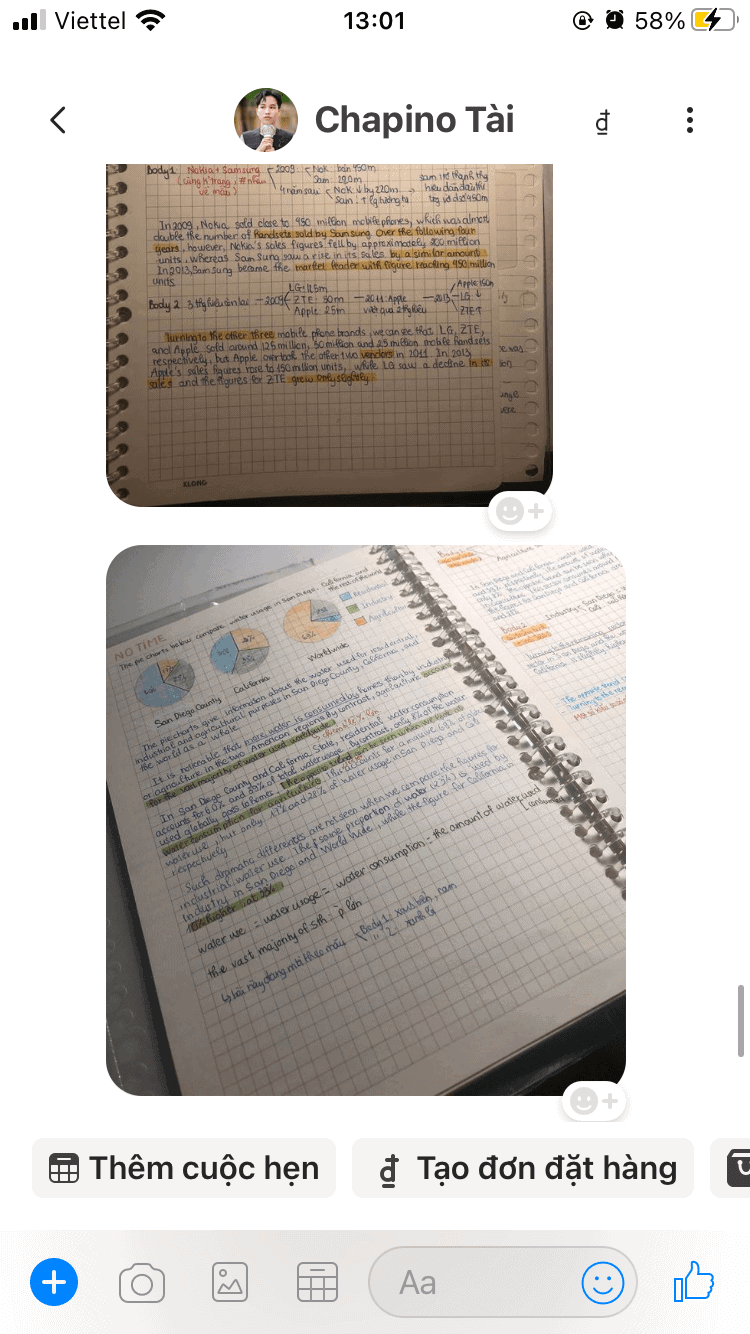 Viettel
13:01
58%
Chapino Tài
đ
Body 1 Nokia + Samsung 2009 Nok bán 450m
Sam 220m
4 năm sau Nok ↓ by 220m
In 2009, Nokia sold close to 450 million mobile phones, which was almost
double the number of handsets sold by Samsung. Over the following four
years, however, Nokia's sales figures fell by approximately 200 million
units, whereas Samsung saw a rise in its sales by a similar amount.
In 2013, Samsung became the market leader with figure reaching 450 million
units
LG: 125m
Apple 150m
Body 2 2009 ZTE: 50m 2011 Apple 2013 LG ↓
Apple 25m vượt qua 2 thg kia ZTE ↑
Turning to the other three mobile phone brands, we can see that LG, ZTE,
and Apple sold around 125 million, 50 million and 25 million mobile handsets
respectively, but Apple overtook the other two vendors in 2011. In 2013
Apple's sales figures rose to 150 million units, while LG saw a decline in its
sales and the figures for ZTE grew only slightly
KLONG
NO TIME
The pie charts below compare water usage in San Diego, California and
the rest of the world
Residential
Industry
Agriculture
San Diego County California Worldwide
The pie charts give information about the water used for residential,
industrial and agricultural purposes in San Diego County, California, and
the world as a whole.
It is noticeable that more water is consumed by homes than by industry
or agriculture in the two American regions. By contrast, agriculture accounts
for the vast majority of water used worldwide.
In San Diego County and California State, residential water consumption
accounts for 60% and 39% of total water usage. By contrast, only 8% of the water
used globally goes to homes. The opposite trend can be seen when we look at
water consumption for agriculture. This accounts for a massive 69% of global
water use, but only 17% and 28% of water usage in San Diego and Calif
respectively
Such dramatic differences are not seen when we compare the figures for
industrial water use. The same proportion of water (23%) is used by
industry in San Diego and World Wide, while the figure for California is
higher at 33%
water use = water usage = water consumption = the amount of water used
the vast majority of sth: p lớn
Body 1: xanh biển, cam
2: xanh lá
Thêm cuộc hẹn
đ Tạo đơn đặt hàng
Aa